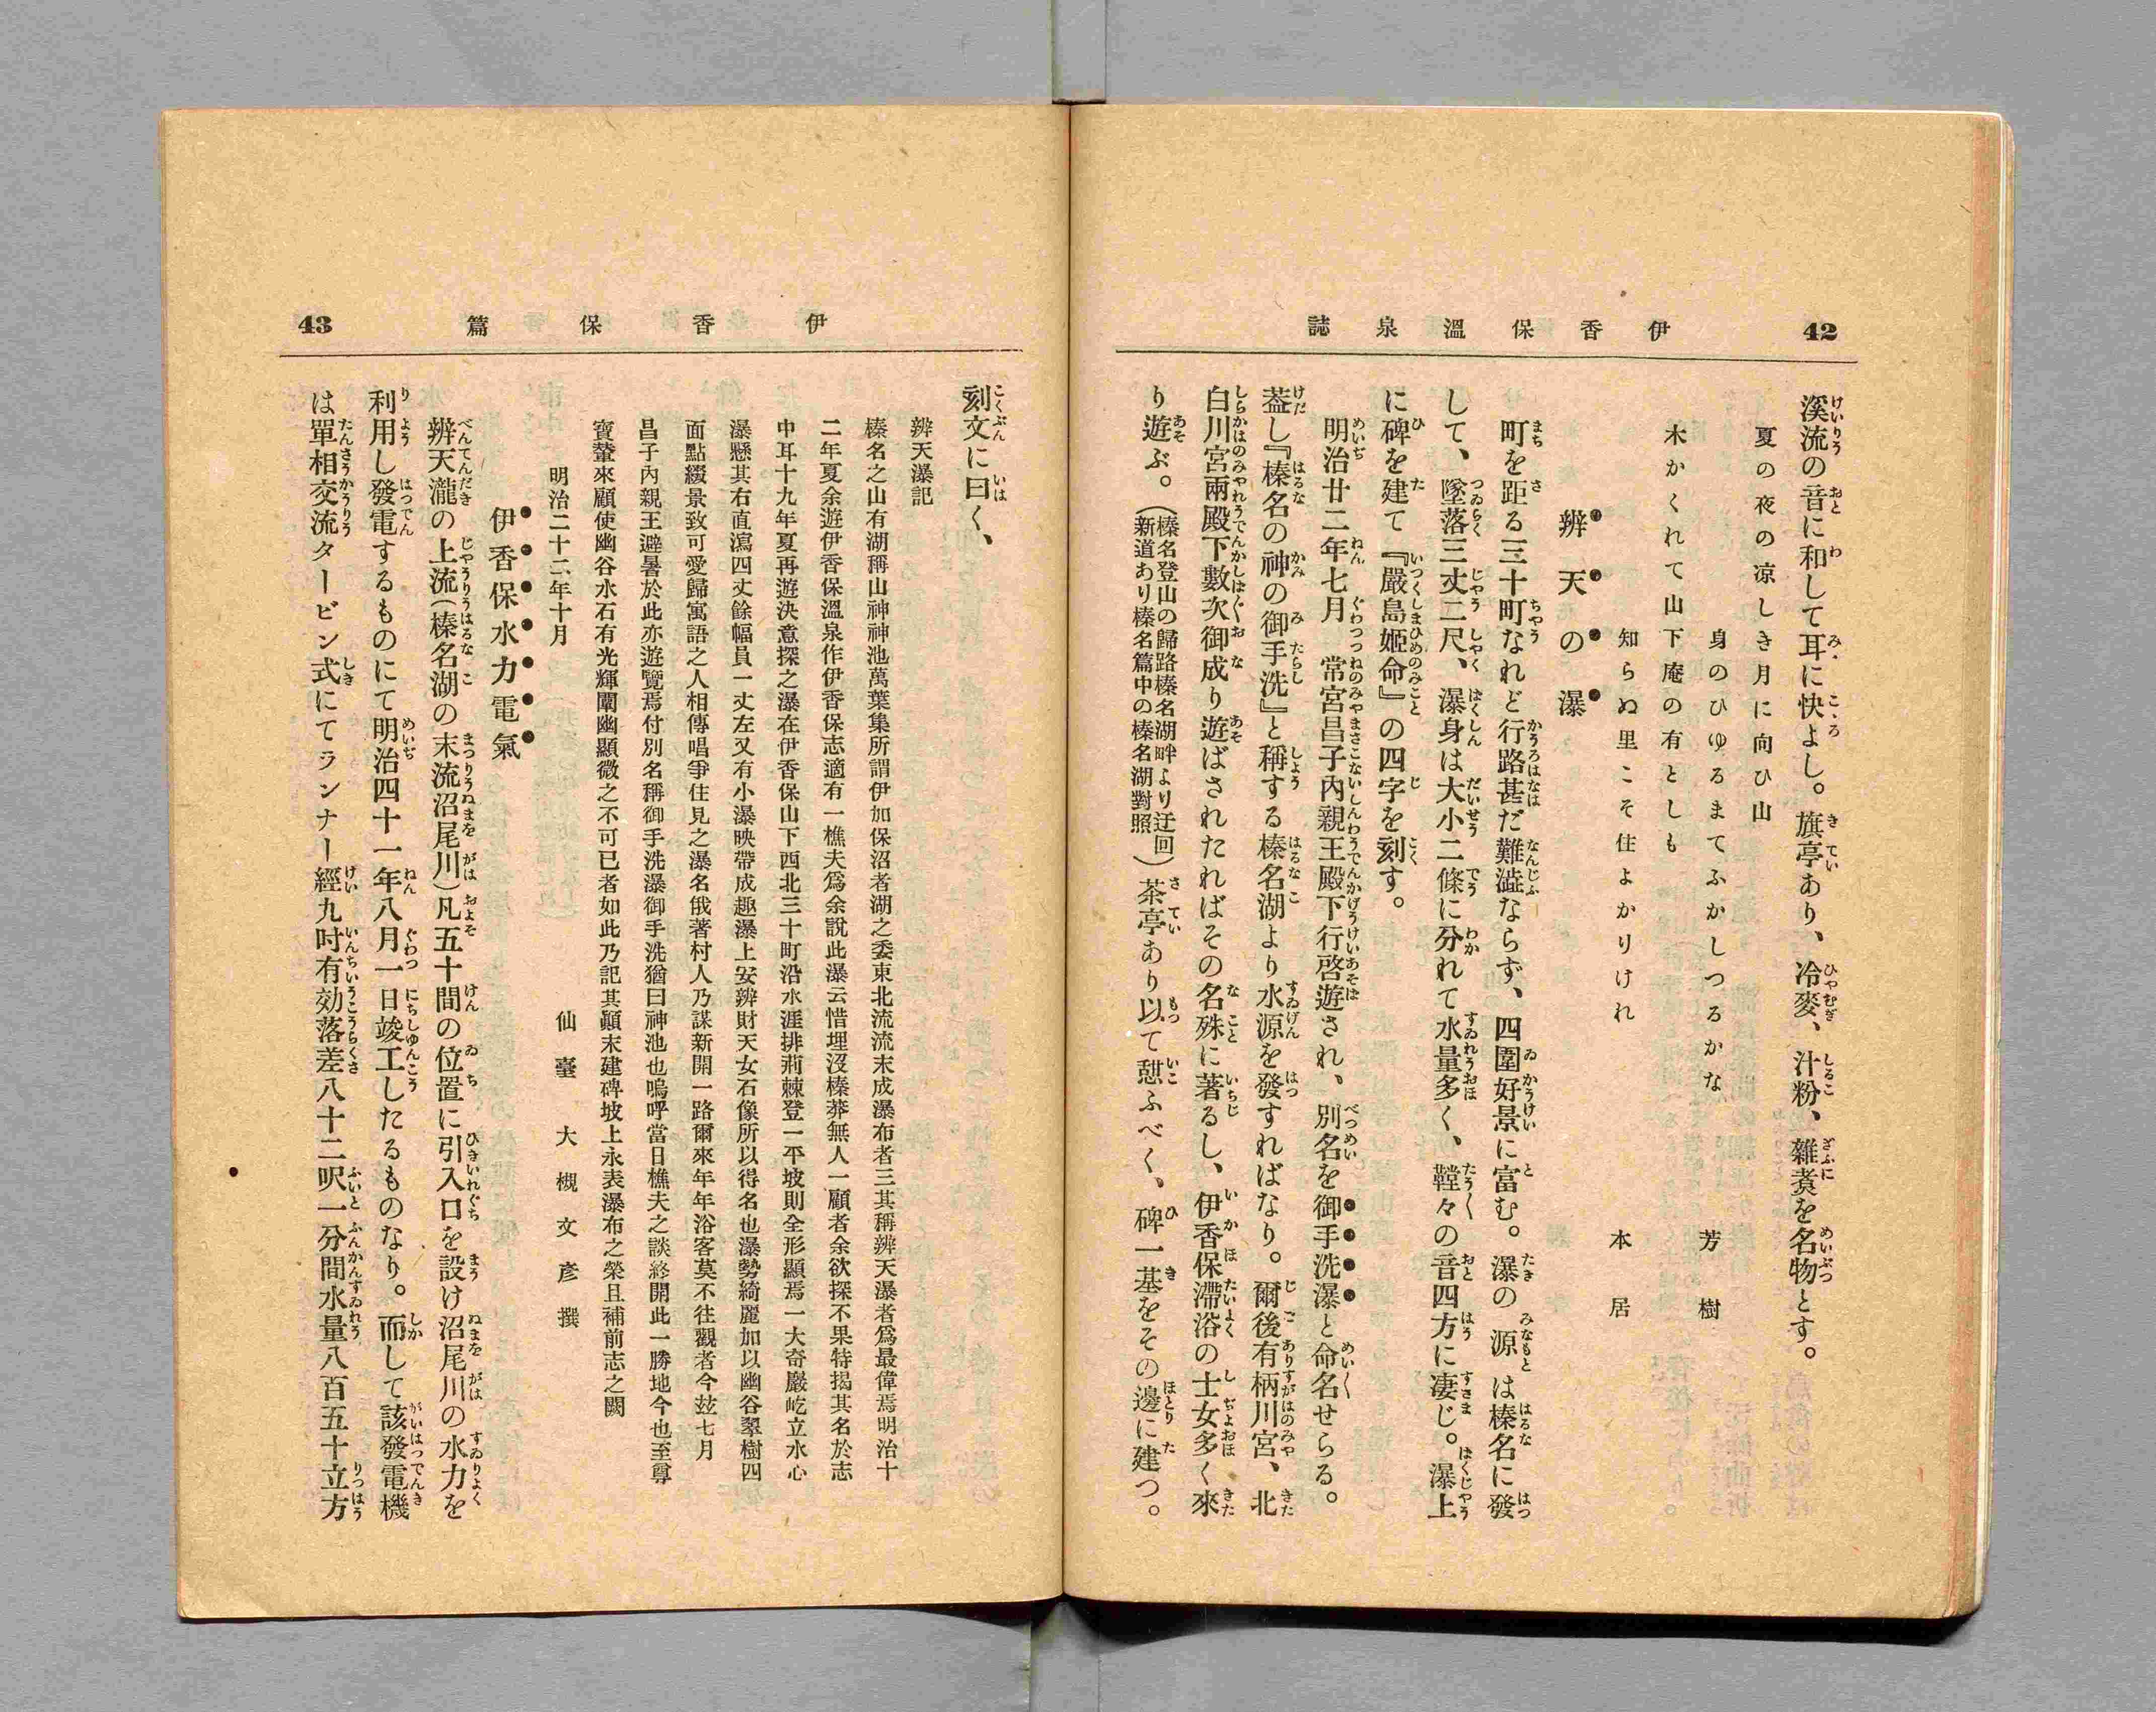 42
伊香保溫泉誌
溪流の音に和して耳に快よし。旗亭あり、冷麥、汁粉、雜煑を名物とす。
夏の夜の凉しき月に向ひ山
身のひゆるまてふかしつるかな　芳樹
木かくれて山下庵の有としも
知らぬ里こそ住よかりけれ　本居
辨天の瀑
町を距る三十町なれど行路甚だ難澁ならず、四圍好景に富む。瀑の源は榛名に發
して、墜落三丈二尺、瀑身は大小二條に分れて水量多く、鞺々の音四方に凄じ。瀑上
に碑を建て『嚴島姬命』の四字を刻す。
明治廿二年七月　常宮昌子內親王殿下行啓遊され、別名を御手洗瀑と命名せらる。
葢し『榛名の神の御手洗』と稱する榛名湖より水源を發すればなり。爾後有柄川宮、北
白川宮兩殿下數次御成り遊ばされたればその名殊に著るし、伊香保滯浴の士女多く來
り遊ぶ。（榛名登山の歸路榛名湖畔より迂回新道あり榛名篇中の榛名湖對照）茶亭あり以て憇ふべく、碑一基をその邊に建つ。
43
伊香保篇
刻文に曰く、
辨天瀑記
榛名之山有湖稱山神神池萬葉集所謂伊加保沼者湖之委東北流流末成瀑布者三其稱辨天瀑者爲最偉焉明治十
二年夏余遊伊香保溫泉作伊香保志適有一樵夫爲余說此瀑云惜埋沒榛莽無人一顧者余欲探不果特揭其名於志
中耳十九年夏再遊決意探之瀑在伊香保山下西北三十町沿水涯排荊棘登一平坡則全形顯焉一大奇巖屹立水心
瀑懸其右直瀉四丈餘幅員一丈左又有小瀑映帶成趣瀑上安辨財天女石像所以得名也瀑勢綺麗加以幽谷翠樹四
面點綴景致可愛歸寓語之人相傳唱爭住見之瀑名俄著村人乃謀新開一路爾來年年浴客莫不往觀者今玆七月
昌子內親王避暑於此亦遊覽焉付別名稱御手洗瀑御手洗猶曰神池也嗚呼當日樵夫之談終開此一勝地今也至尊
寶輦來顧使幽谷水石有光輝闡幽顯微之不可已者如此乃記其顚末建碑坡上永表瀑布之榮且補前志之闕
明治二十二年十月　仙臺　大槻文彦撰
伊香保水力電氣
辨天瀧の上流（榛名湖の末流沼尾川）凡五十間の位置に引入口を設け沼尾川の水力を
利用し發電するものにて明治四十一年八月一日竣工したるものなり。而して該發電機
は單相交流タービン式にてランナー經九吋有効落差八十二呎一分間水量八百五十立方